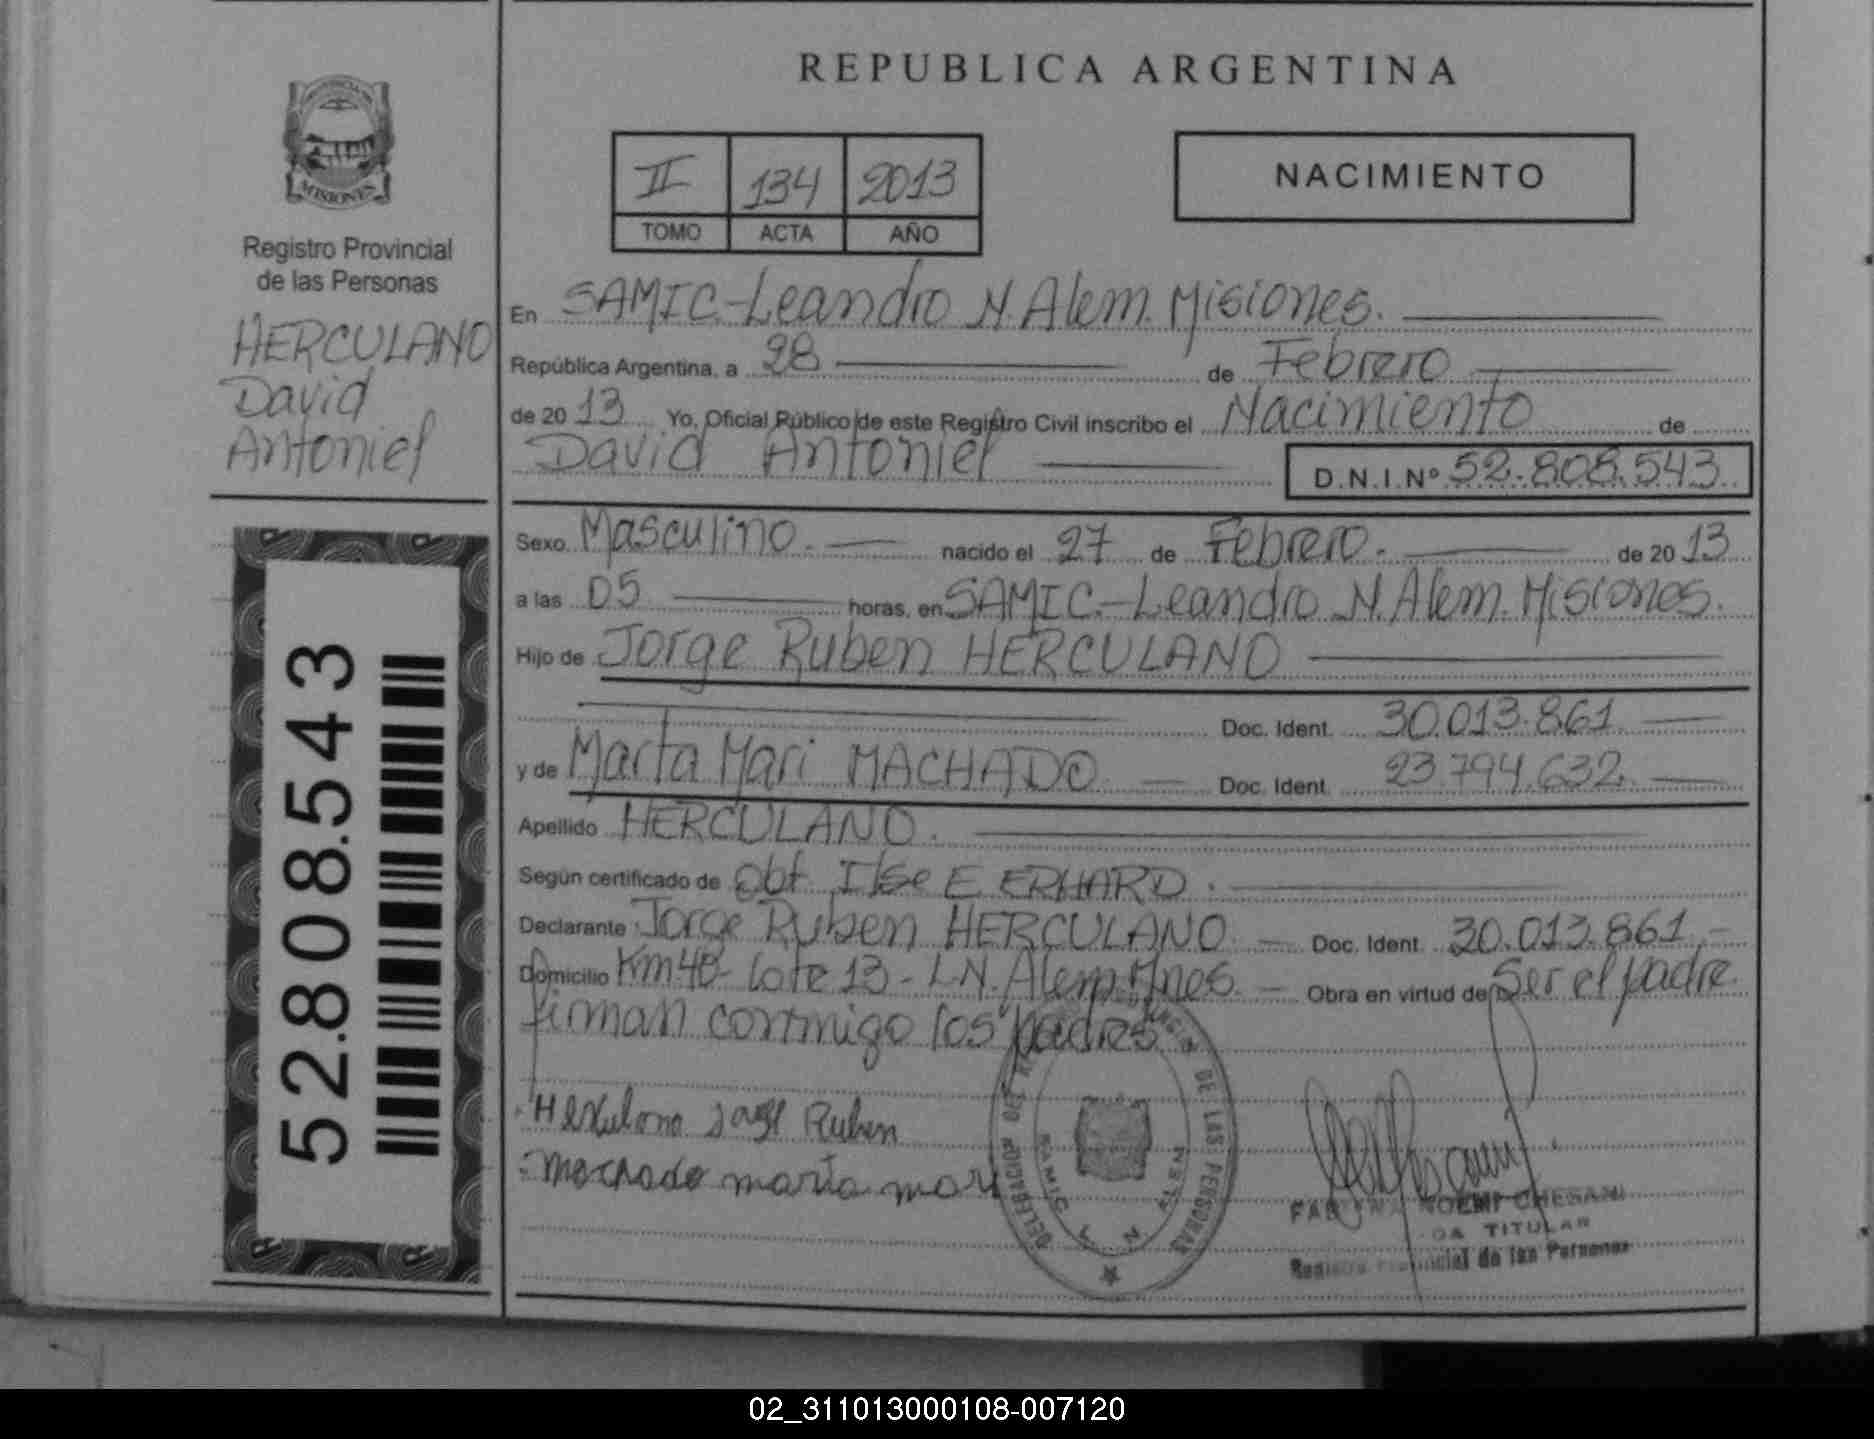 REPUBLICA ARGENTINA
PROVINCIA DE
MISIONES
Registro Provincial
de las Personas
HERCULANO
David
Antoniel
52.808.543
II 134 2013
TOMO ACTA AÑO
NACIMIENTO
En SAMIC-Leandro N. Alem. Misiones.
República Argentina, a 28 de Febrero
de 2013 Yo, Oficial Público de este Registro Civil inscribo el Nacimiento de
David Antoniel D.N.I.Nº 52.808.543
Sexo Masculino. nacido el 27 de Febrero. de 2013
a las 05 horas, en SAMIC.-Leandro N. Alem. Misiones.
Hijo de Jorge Ruben HERCULANO
Doc. Ident. 30.013.861
y de Marta Mari MACHADO Doc. Ident. 23.794.632
Apellido HERCULANO.
Según certificado de Obt. Ilse E ERHARD.
Declarante Jorge Ruben HERCULANO Doc. Ident. 30.013.861
Domicilio Km 40- Lote 13 - L.N. Alem Mnes. Obra en virtud de Ser el padre
firman conmigo los padres
Herculano Jorge Ruben
Machado marta mari
DE LAS PERSONAS
SAMIC
NOEMI CHESANI
TITULAR
Registro Provincial de las Personas
02_311013000108-007120